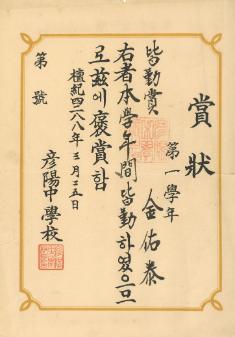 賞狀
第一學年
金佑泰
皆勤賞
右者本學年間皆勤하였으므
로玆에褒賞함
檀紀四二八八年三月二五日
彦陽中學校
第 號